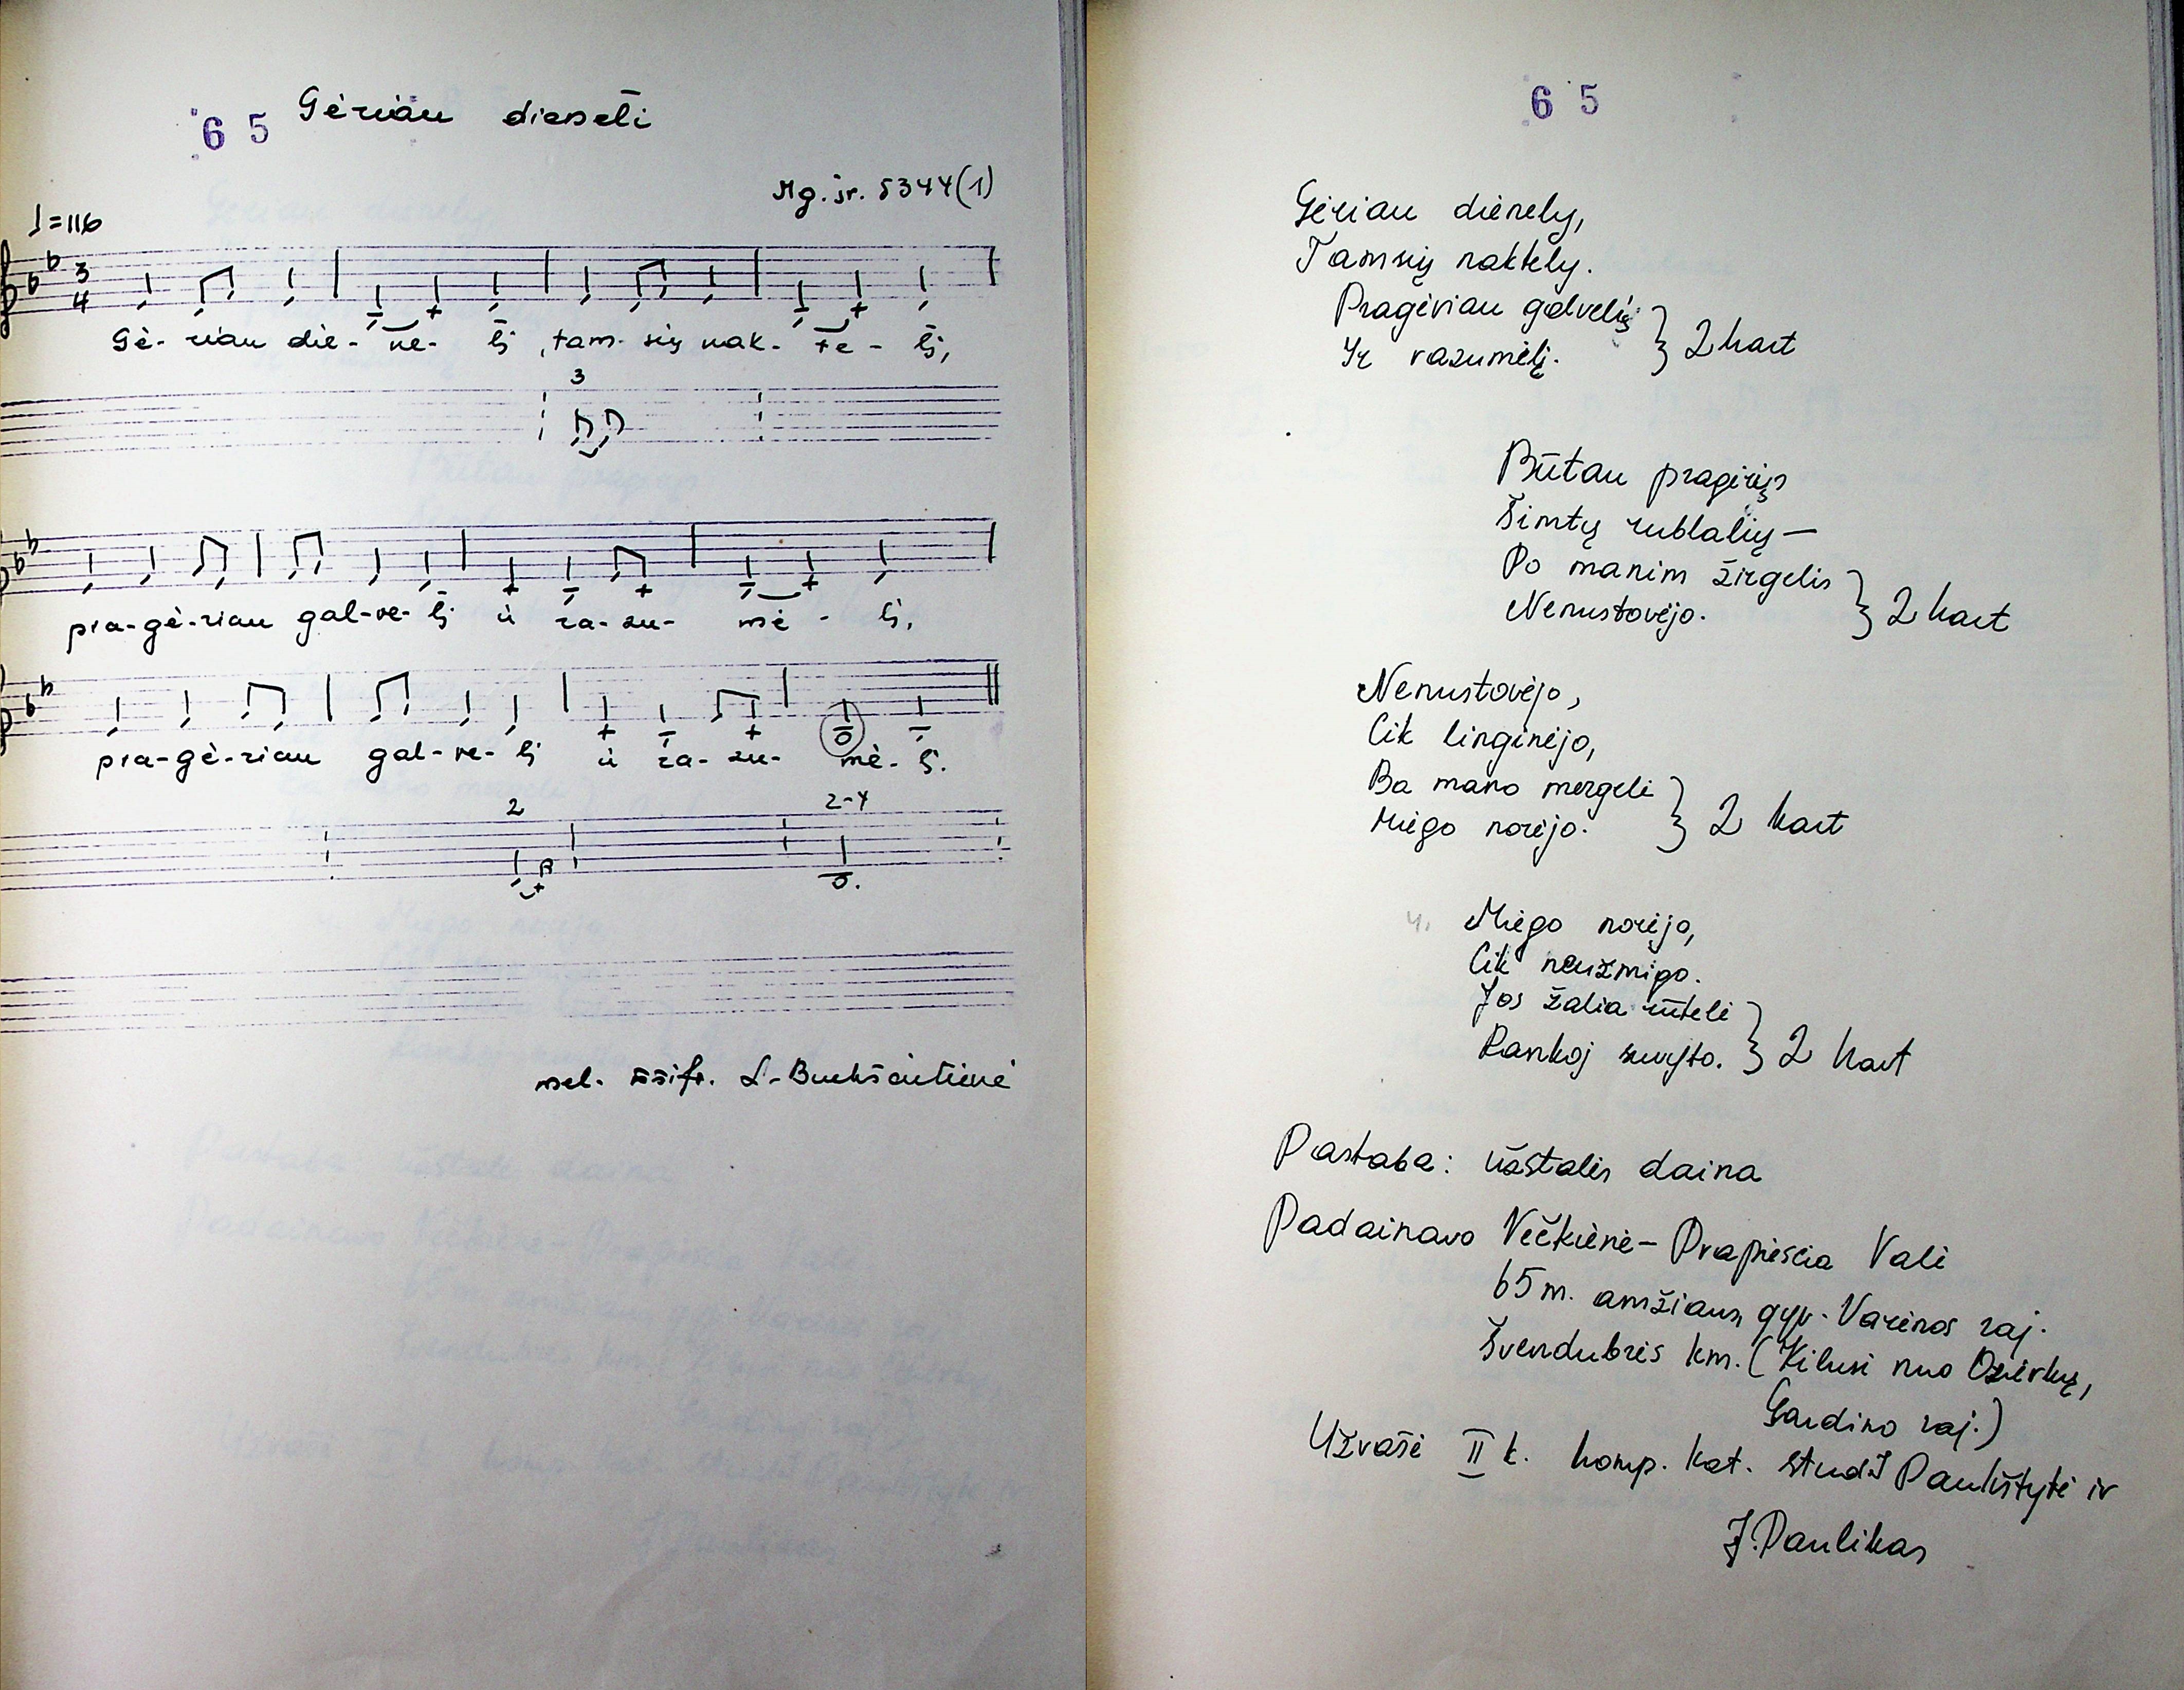 65 Gėriau dienelį
Mg. įr. 5344(1)
♩=116
3
4
Gė- riau die- ne- lį, tam- sių nak- te- lį,
3
pra-gė-riau gal-ve- lį ir ra- zu- mė - lį,
pra-gė-riau gal-ve- lį ir ra- zu- mė- lį.
2 2-4
mel. iššifr. L. Burkšaitienė
65
Gėriau dienely,
Tamsių naktely.
Pragėriau galvelįį
Ir razumėlį. } 2 kart
Būtau pragėrįs
Šimtų rublalių—
Po manim žirgelis
Nenustovėjo. } 2 kart
Nenustovėjo,
Cik linginėjo,
Ba mano mergelė
Miego norėjo. } 2 kart
4. Miego norėjo,
Cik neužmigo.
Jos žalia rūtelė
Rankoj suvyto. } 2 kart
Pastaba: užstalės daina
Padainavo Večkienė- Prapiescia Valė
65 m. amžiaus, gyv. Varėnos raj.
Švendubrės km. (Kilusi nuo Ozierkų,
Gardino raj.)
Užrašė II k. komp. kat. stud. Paukštytė ir
J. Paulikas